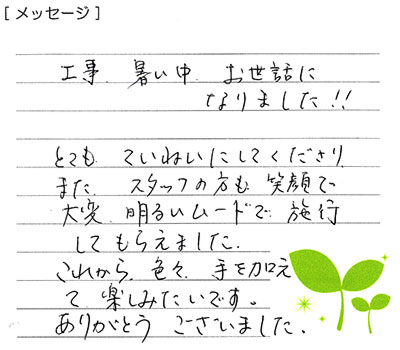 [メッセージ]
工事、暑い中、お世話に
なりました!!
とても ていねいにしてくださり
また、スタッフの方も、笑顔で
大変、明るいムードで、施行
してもらえました。
これから、色々、手を加え
て、楽しみたいです。
ありがとう ございました。